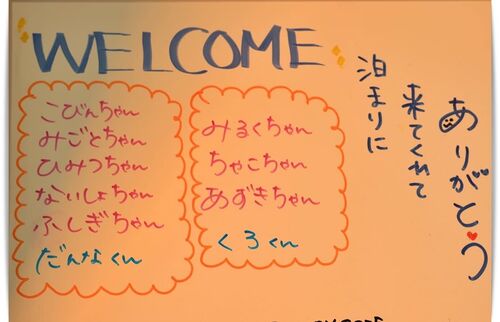 WELCOME
こびんちゃん
みごとちゃん
ひみつちゃん
ないしょちゃん
ふしぎちゃん
だんなくん
みるくちゃん
ちゃこちゃん
あずきちゃん
くろくん
泊まりに
来てくれて
ありがとう